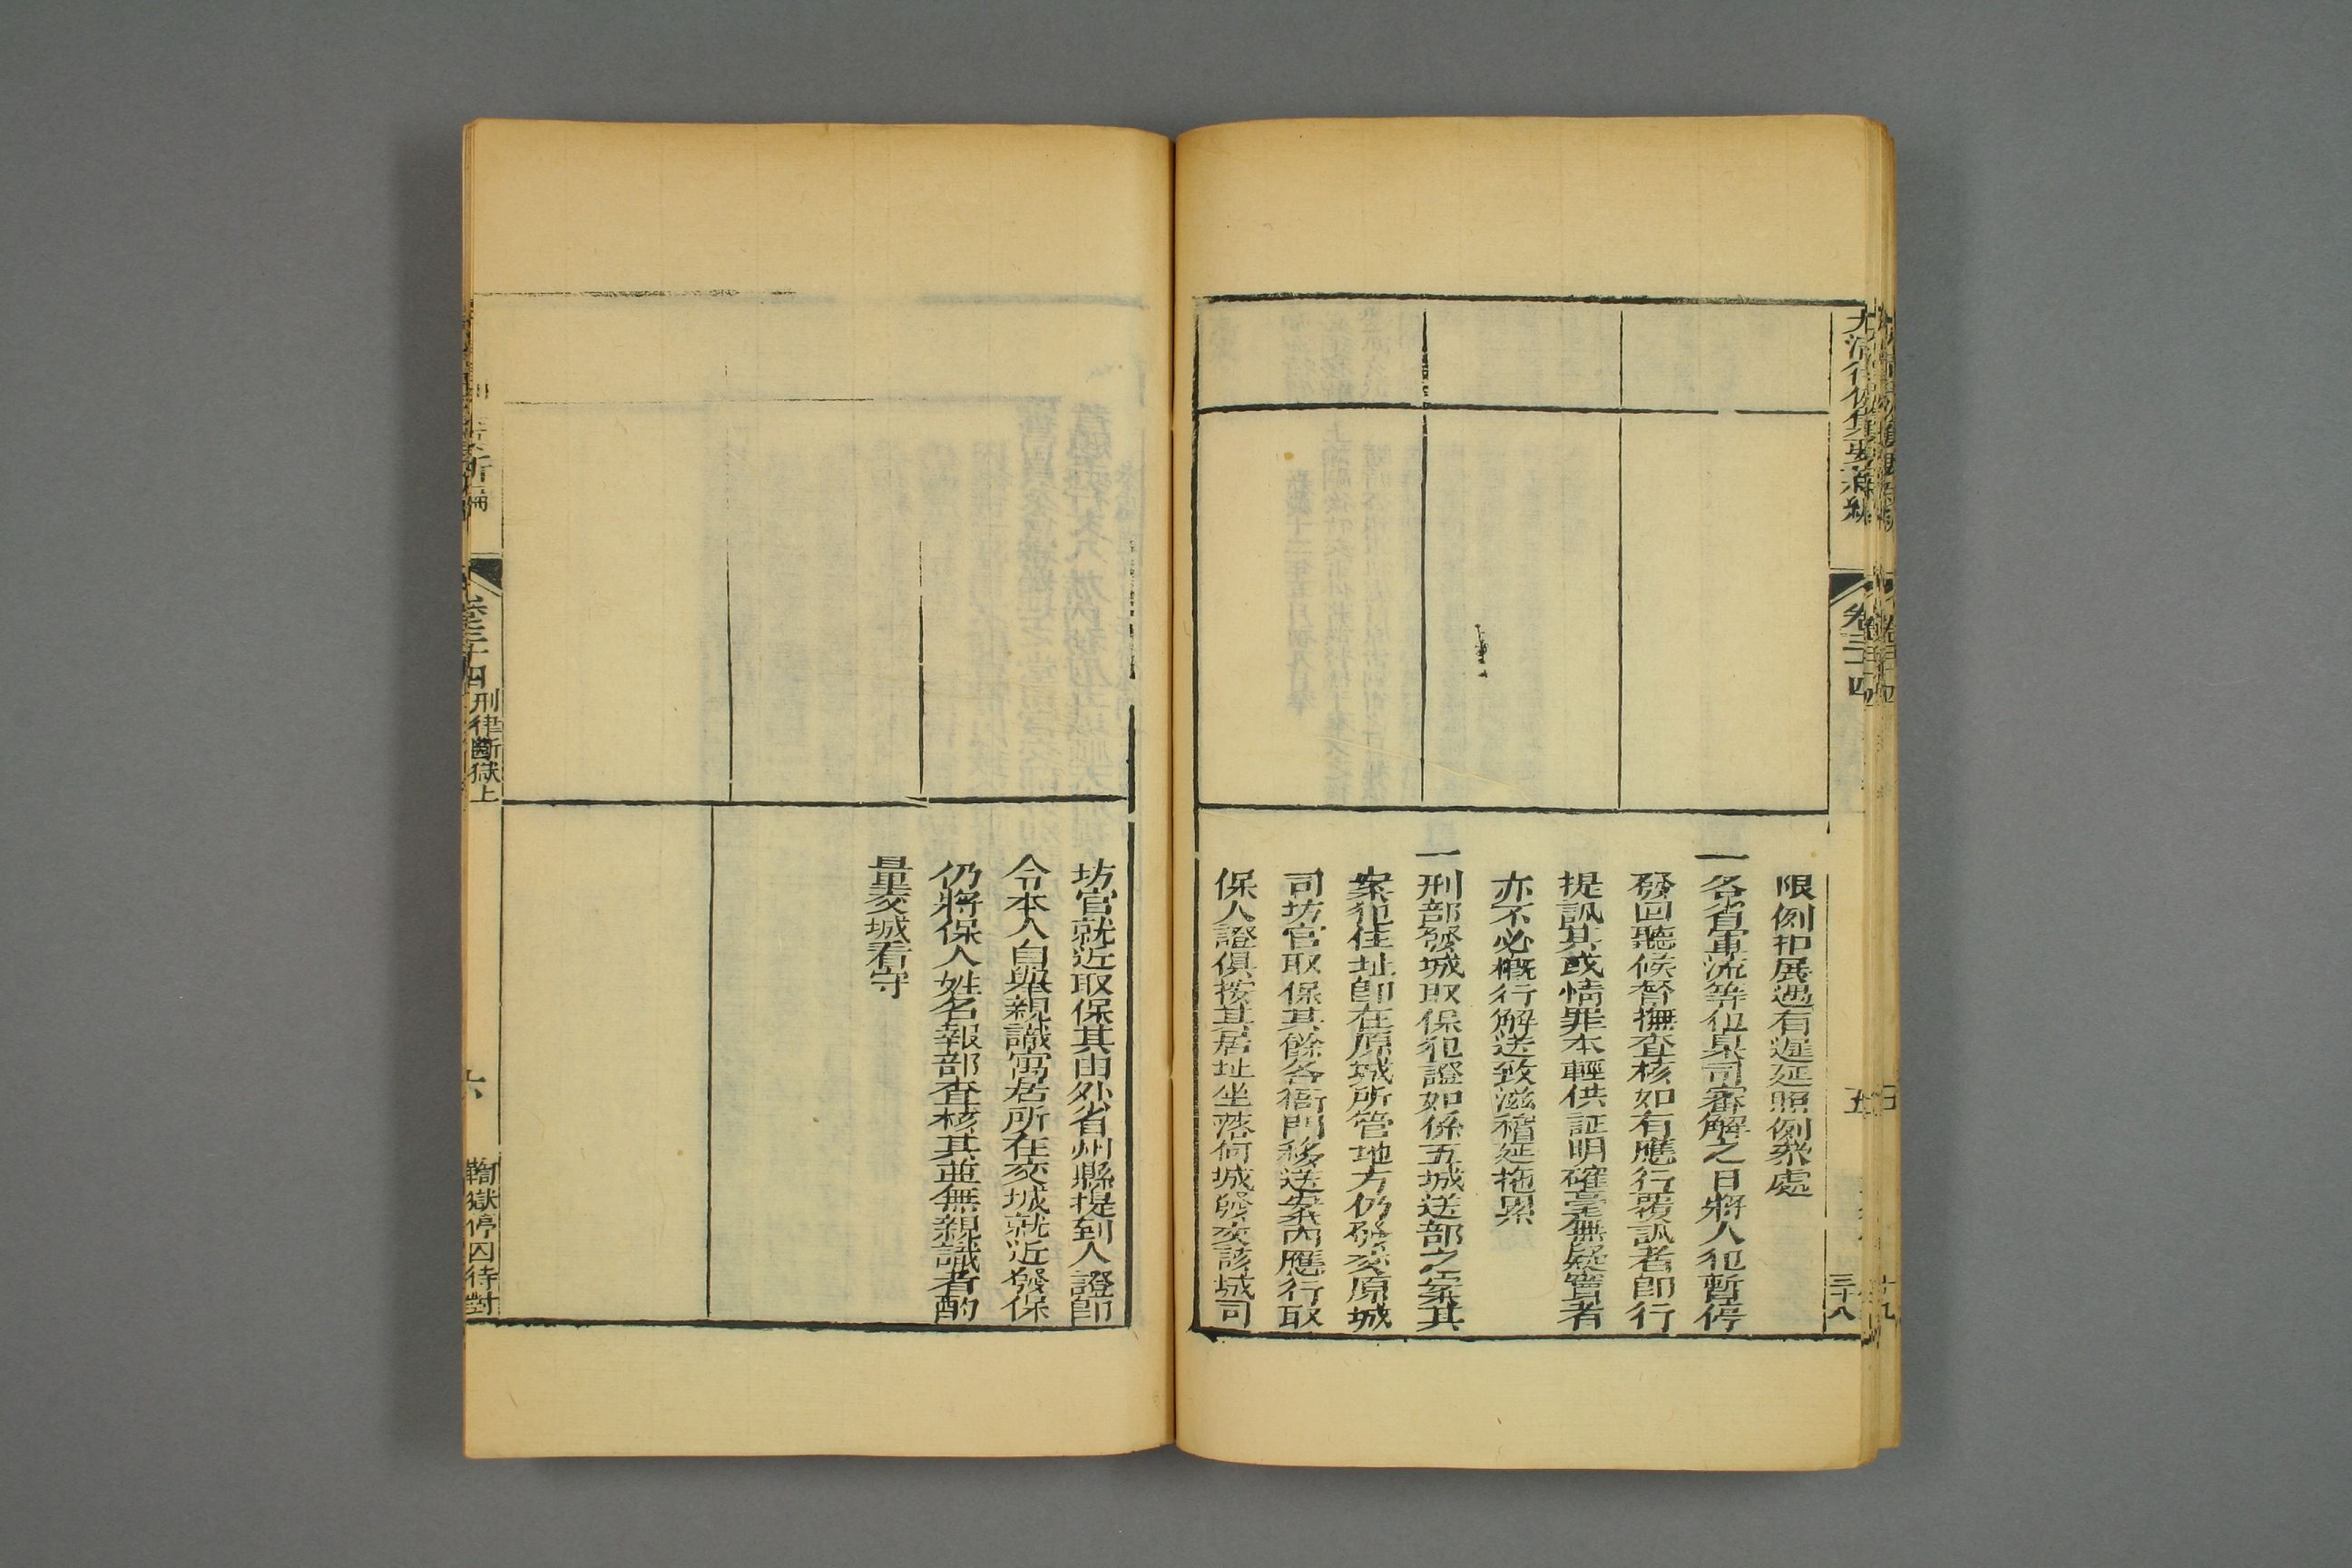 大清律例集要新編
卷三十四
五
三十八
限例扣展遇有遲延照例叅處
一各省軍流等犯臬司審解之日將人犯暫停
發回聽候督撫查核如有應行覆訊者卽行
提訊其或情罪本輕供証明確毫無疑竇者
亦不必槪行解送致滋稽延拖累
一刑部發城取保犯證如係五城送部之案其
案犯住址卽在原城所管地方仍發交原城
司坊官取保其餘各衙門移送案內應行取
保人證俱按其居址坐落何城發交該城司
坊官就近取保其由外省州縣提到人證卽
令本人自舉親識寓居所在交城就近發保
仍將保人姓名報部查核其並無親識者酌
量交城看守
卷三十四
刑律斷獄上
六
鞫獄停囚待對